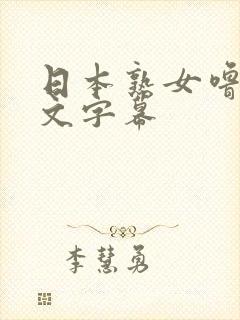 日本熟女噜
文字幕
李慧勇